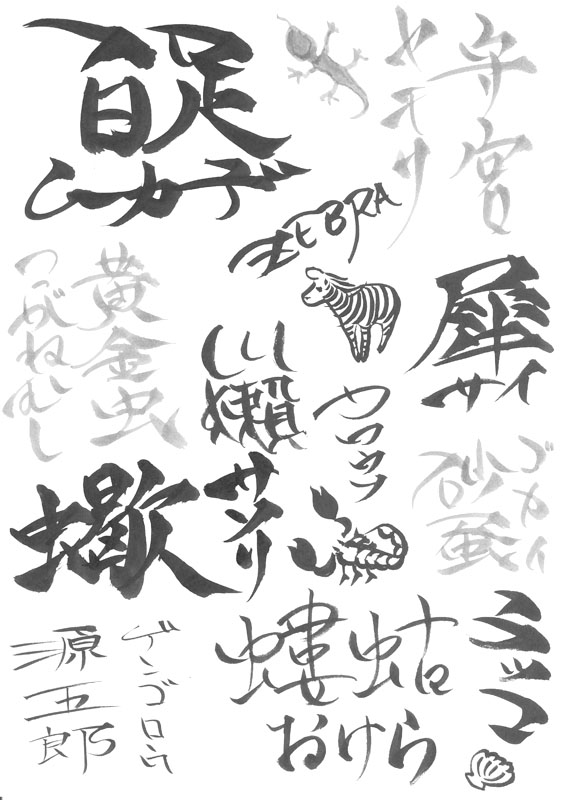 百足
ムカデ
守宮
ヤモリ
ZEBRA
黄金虫
こがねむし
川獺
カワウソ
犀
サイ
蠍
サソリ
砂蚕
ゴカイ
源五郎
ゲンゴロウ
螻蛄
おけら